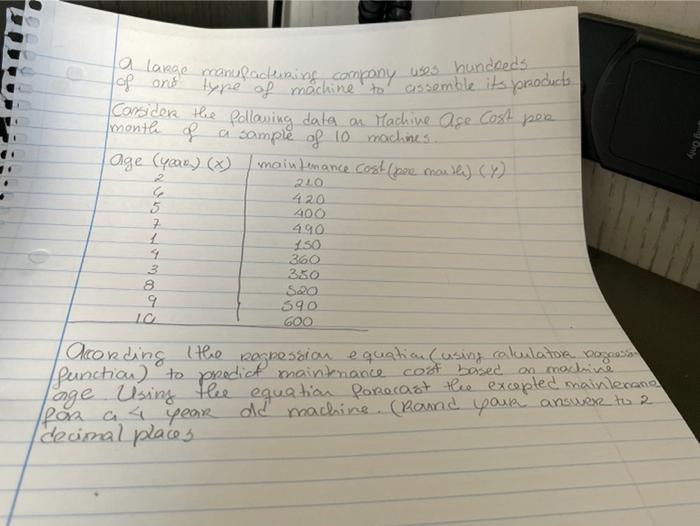 a large manufacturing company uses hundreds
of one type of machine to assemble its products
Consider the following data on Machine Age Cost per
month of a sample of 10 machines.
age (year) (X) maintenance Cost (per month) (Y)
2 210
6 420
5 400
7 490
1 150
4 360
3 350
8 520
9 590
10 600
According (the regression equation (using calculator regression
function) to predict maintenance cost based on machine
age. Using the equation forecast the excepted maintenance
for a 4 year old machine. (Round your answer to 2
decimal places
Only